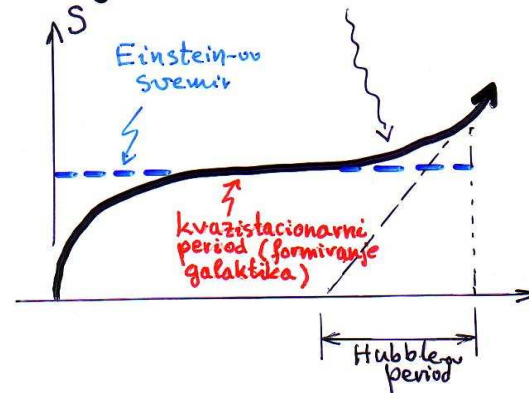 S
Einstein-ov
svemir
kvazistacionarni
period (formiranje
galaktika)
Hubble-ov
period